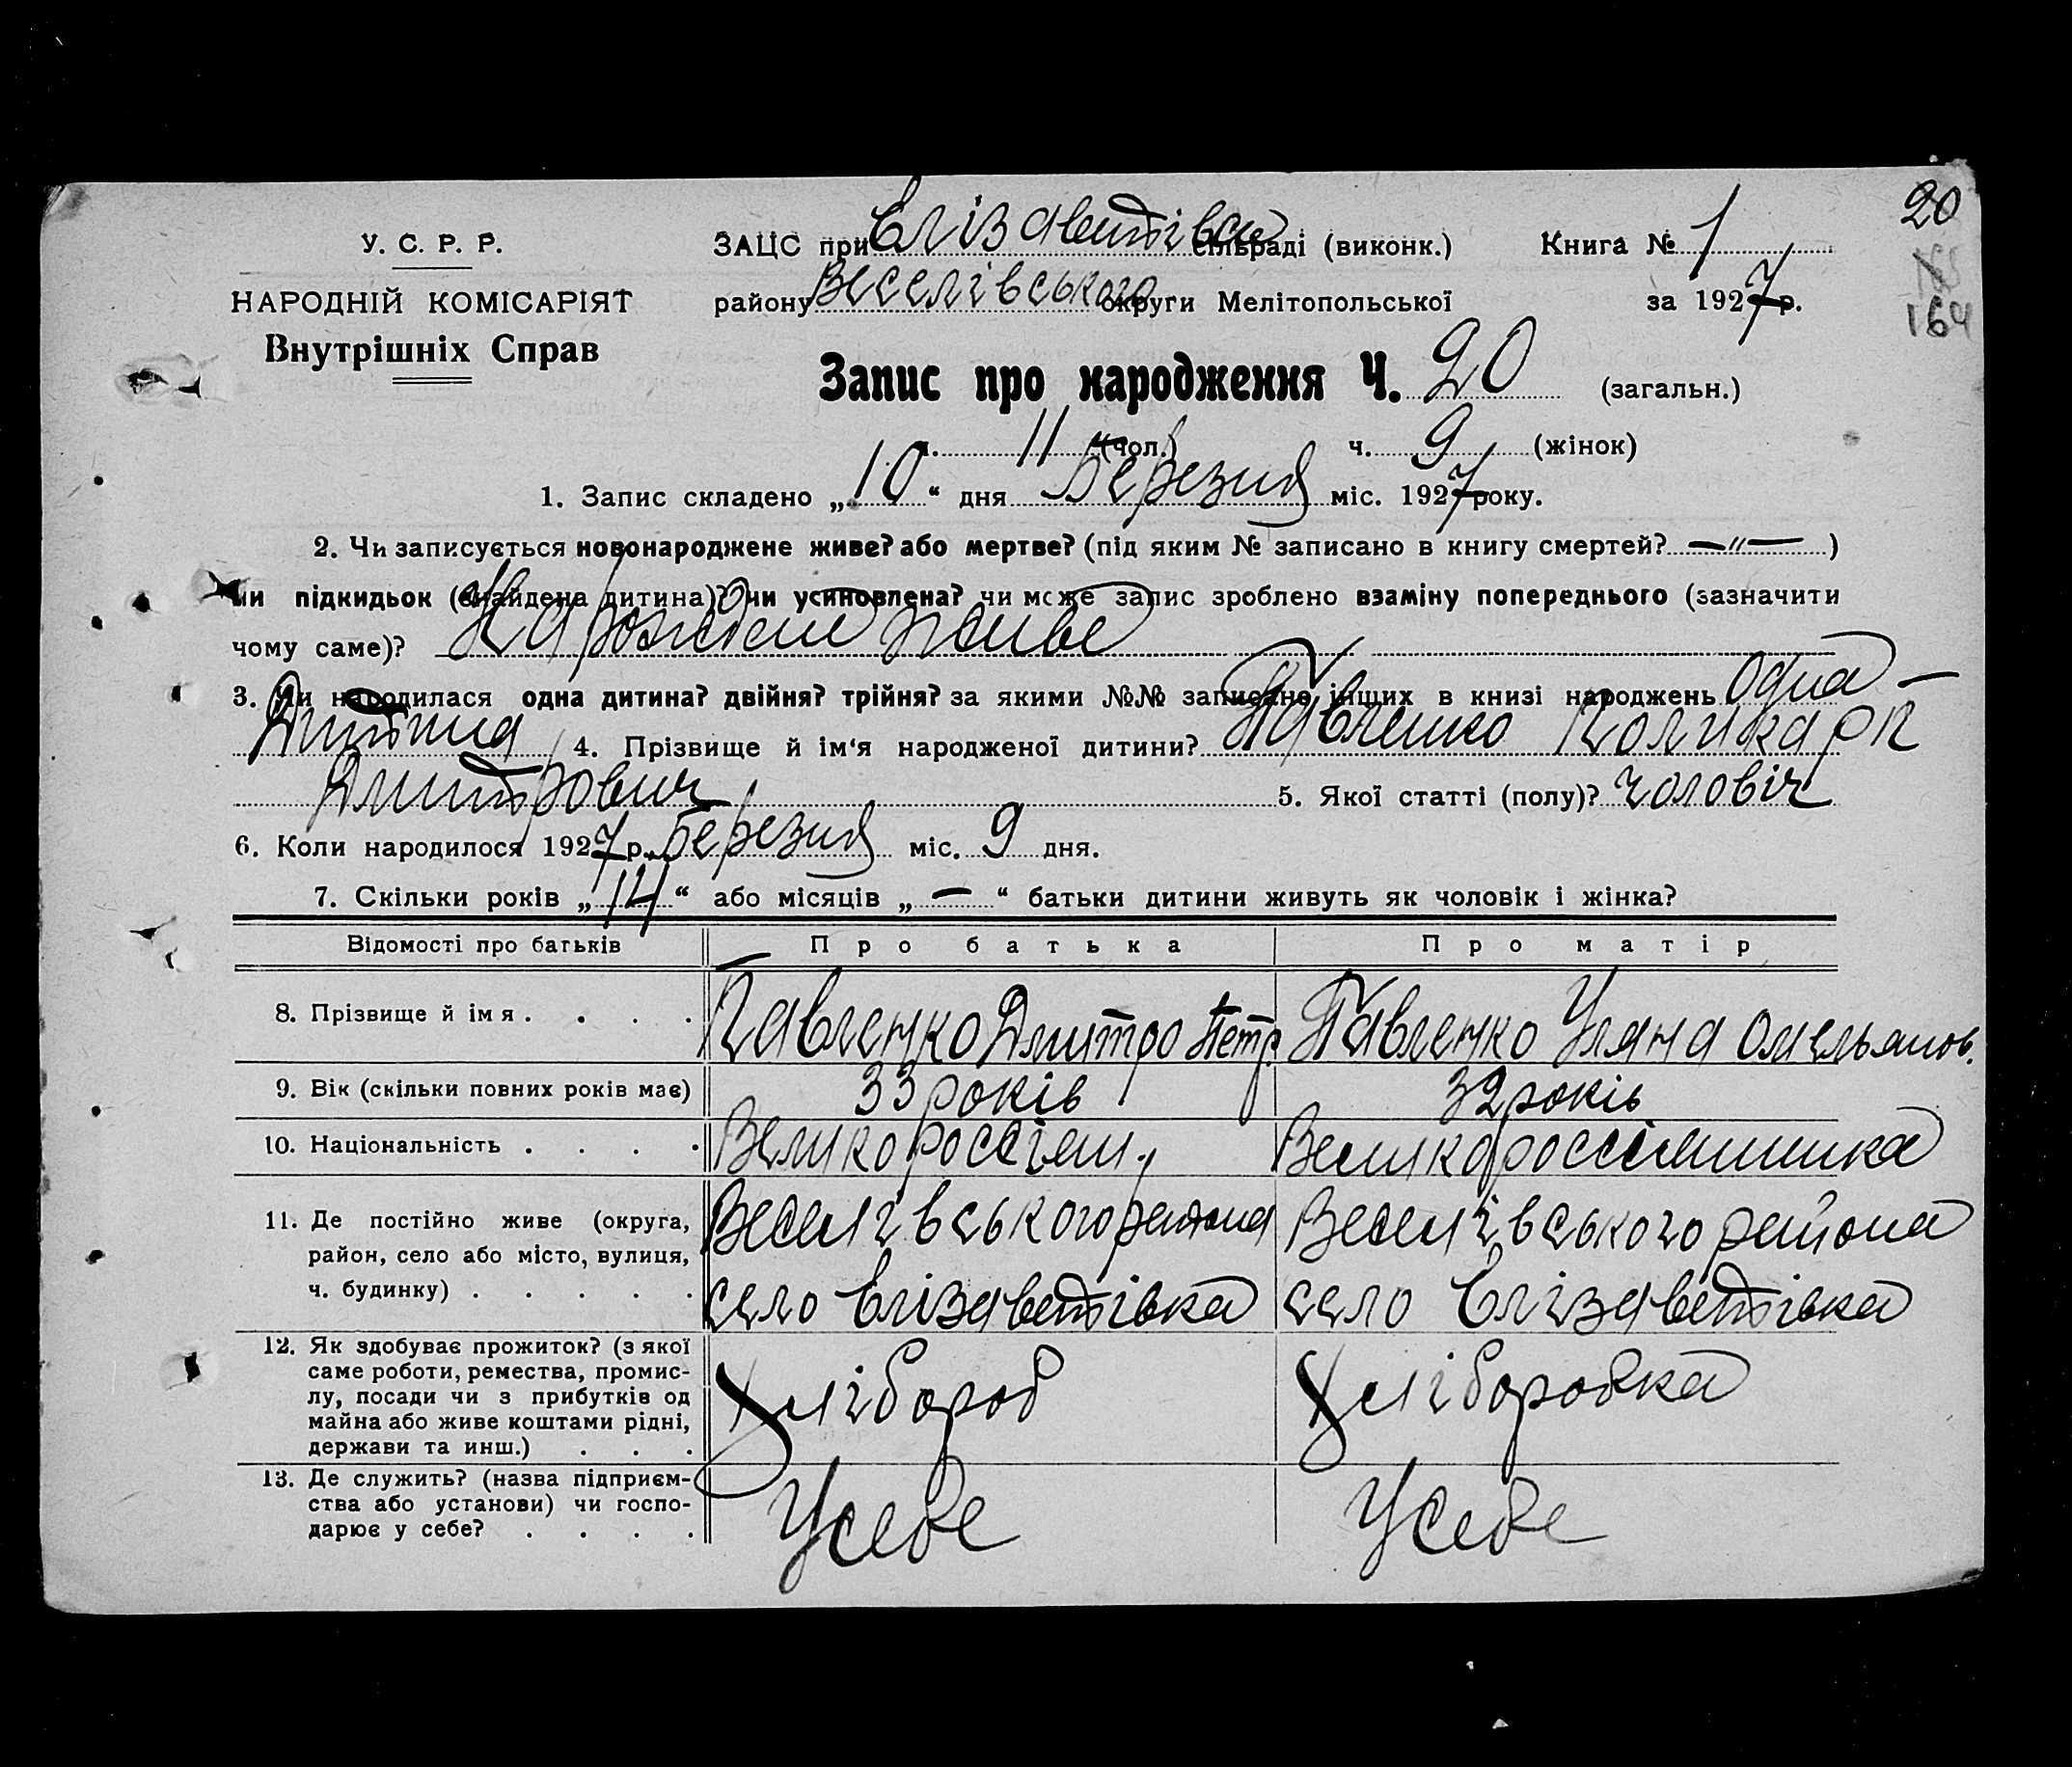 20
У. С. Р. Р. ЗАЦС при Єлізаветівськ сільраді (виконк.) Книга № 1
164
НАРОДНІЙ КОМІСАРІЯТ району Веселівського округи Мелітопольської за 1927 р.
Внутрішніх Справ
Запис про народження Ч. 20 (загальн.)
ч. 11 (чол.) ч. 9 (жінок)
1. Запис складено „10“ дня Березня міс. 1927 року.
2. Чи записується новонароджене живе? або мертве? (під яким № записано в книгу смертей? —〃— )
чи підкидьок (знайдена дитина)? чи усиновлена? чи може запис зроблено взаміну попереднього (зазначити
чому саме)? живе
3. Чи народилася одна дитина? двійня? трійня? за якими №№ записано інщих в книзі народжень Одна —
Дитина 4. Прізвище й ім‘я народженої дитини? Павленко Поликарп
Дмитрович 5. Якої статті (полу)? чоловіч
6. Коли народилося 1927 р. Березня міс. 9 дня.
7. Скільки років „14“ або місяців „—“ батьки дитини живуть як чоловік і жінка?
Відомості про батьків Про батька Про матір
8. Прізвище й імя . . . . Павленко Дмитро Петр. Павленко Уляна Омельянов.
9. Вік (скільки повних років має) 33 років 32 років
10. Національність . . . . Великороссіян. Великороссіянинка
11. Де постійно живе (округа, Веселівського района Веселівського района
район, село або місто, вулиця,
ч. будинку) . . . . . село Єлізаветівка село Єлізаветівка
12. Як здобуває прожиток? (з якої
саме роботи, ремества, промис-
лу, посади чи з прибутків од Хлібороб Хліборобка
майна або живе коштами рідні,
держави та инш.) . . .
13. Де служить? (назва підприєм-
ства або установи) чи госпо- Усебе Усебе
дарює у себе? . . . .